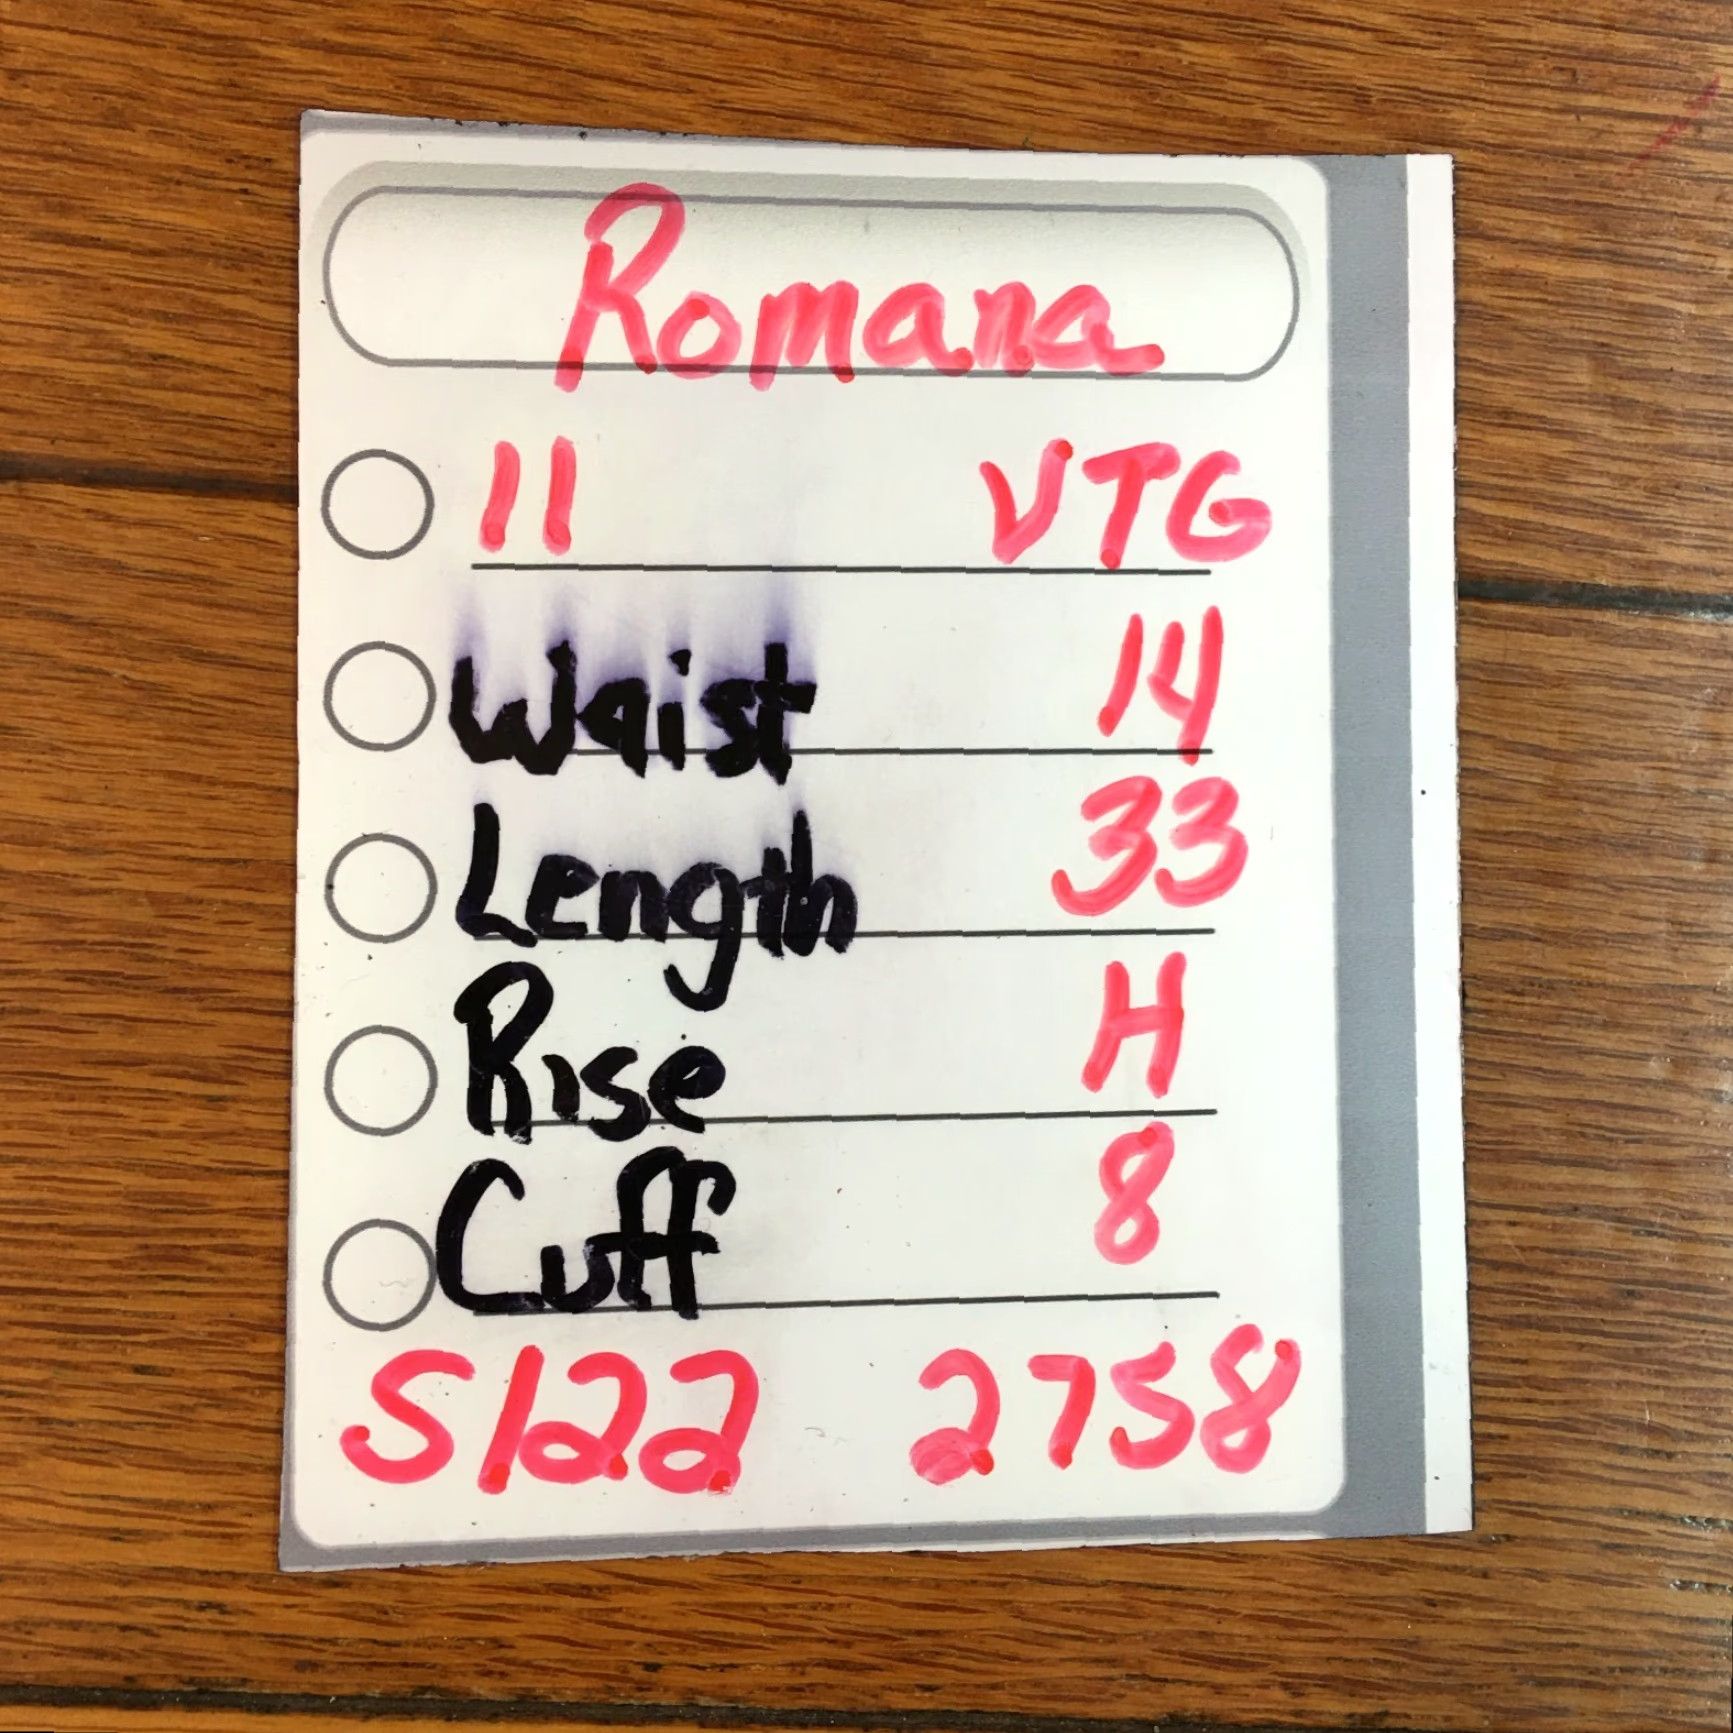 Romana
11 VTG
Waist 14
Length 33
Rise H
Cuff 8
S122 2758